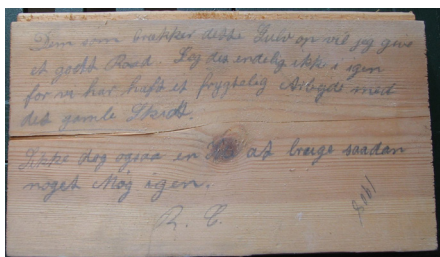 Dem som brækker dette Gulv op vil jeg give
et godt Raad. Læg det endelig ikke i igen
for vi har haft et frygtelig Arbejde med
det gamle Skidt.
Ikke og ogsaa en at bruge saadan
noget Møg igen.
R. C.